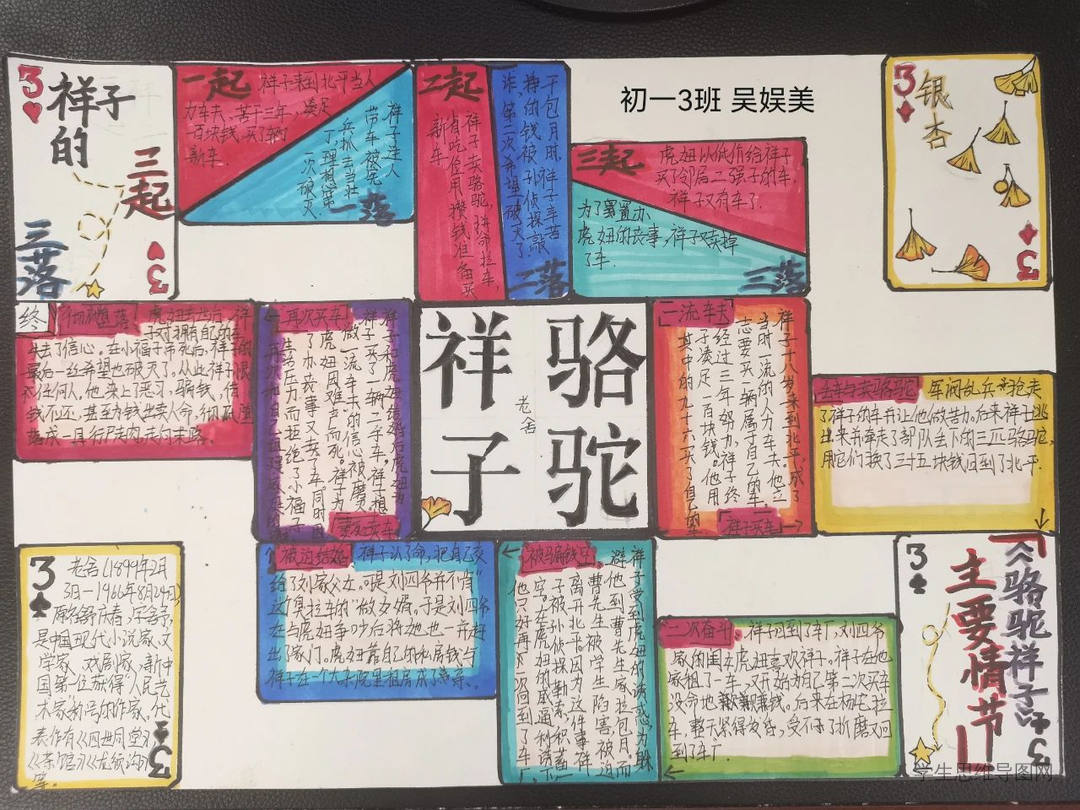 初一3班 吴娱美
3
祥子
的
三起
三落
3
一起 祥子来到北平当人
力车夫，苦干三年，凑足
一百块钱，买了辆
新车。
祥子连人
带车被宪
兵抓去当壮
丁。理想第
一次破灭。
一落
二起
祥子卖骆驼，拼命拉车，
省吃俭用攒钱准备买
新车
干包月时，祥子辛苦
攒的钱被孙侦探敲
诈，第二次希望破灭了。
二落
三起
虎妞以低价给祥子
买了邻居二强子的车，
祥子又有车了.
为了置办
虎妞的丧事，祥子又卖掉
了车.
三落
3
银
杏
3
终
彻底堕落 虎妞去世后，祥
子对拥有自己的车
失去了信心，在小福子吊死后，祥子的
最后一丝希望也破灭了。从此祥子恨
任何人，他染上了恶习，骗钱，借
钱不还，甚至为钱出卖人命，彻底堕
落成一具行尸走肉
再次买车
祥子和虎妞结婚后虎妞为
祥子买了一辆二手车，祥子想
做一流车夫的信心被磨灭
虎妞因难产而死。祥子为
了办丧事又卖了车同时因
生活压力而拒绝了小福子
骆驼
祥子
老舍
一流车夫
祥子十八岁来到北平，成了
当时一流的人力车夫。他立
志要买一辆属于自己的车。
经过三年努力，祥子终
于凑足一百块钱。他用
其中的九十六买了自己的
祥子买车
丢车与卖骆驼 军阀乱兵抢走
了祥子的车并让他做苦力。后来祥子逃
出来并牵走了部队丢下的三匹骆驼，
用它们换了三十五块钱回到了北平.
3
老舍（1899年2月
3日—1966年8月24日），
原名舒庆春，字舍予，
是中国现代小说家、文
学家、戏剧家、新中
国第一位获得“人民艺
术家”称号的作家。代
表作有《四世同堂》
《茶馆》《龙须沟》
等。
3
被迫结婚 祥子认了命，把自己交
给了刘家父女。可是刘四爷并不肯
这“臭拉车的”做女婿。于是刘四爷
在与虎妞争吵后将她也一并赶
出了家门。虎妞靠自己的私房钱与
祥子在一个大杂院里租房成了亲。
被骗钱空
祥子受到虎妞的诱惑，为躲
避他到曹先生家拉包月，而
曹先生被学生陷害，被迫
离开北平，因为这件事祥
子被孙侦探勒索，积蓄一
空，在虎妞的威逼利诱下
他只好再一次回到了车厂。
二次奋斗 祥子回到了车厂，刘四爷
家的闺女虎妞喜欢祥子。祥子在他
家租了一车，又开始为自己第二次买车
没命地赚钱。后来在杨宅拉
车，整天累得发昏，受不了折磨又回
到了车厂
3
《骆驼祥子》
主要情节
3
学生思维导图网